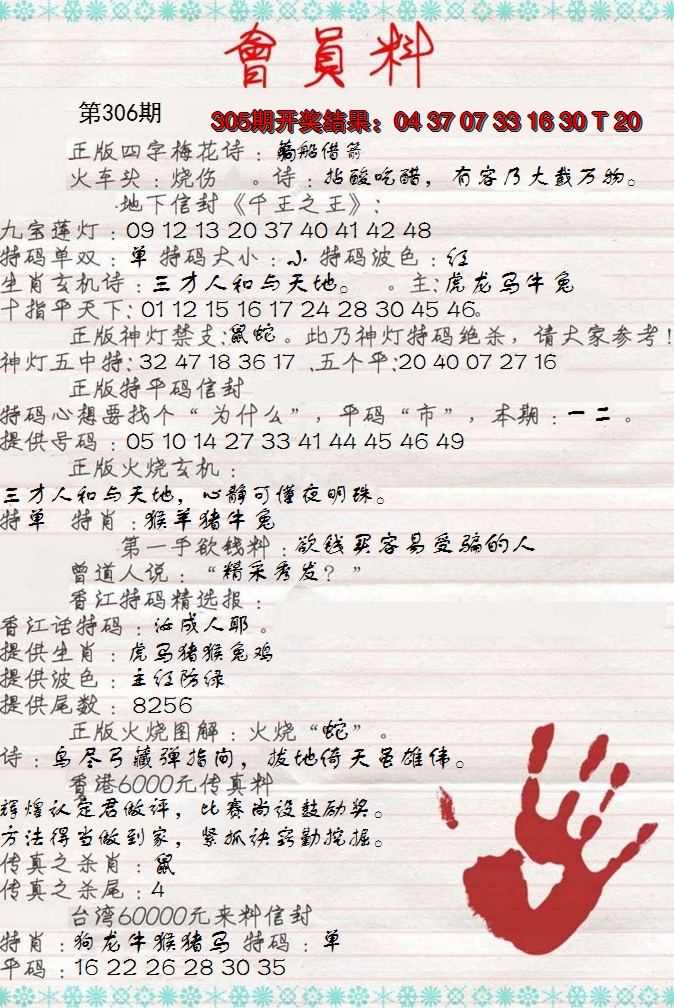 會員料
第306期
305期开奖结果：04 37 07 33 16 30 T 20
正版四字梅花诗：船借箭
火车头：烧伤 。诗：拈酸吃醋，有容乃大载万物。
地下信封《千王之王》：
九宝莲灯：09 12 13 20 37 40 41 42 48
特码单双：单 特码大小：小 特码波色：红
生肖玄机诗：三才人和与天地。 。主：虎龙马牛兔
十指平天下：01 12 15 16 17 24 28 30 45 46。
正版神灯禁支：鼠蛇。此乃神灯特码绝杀，请大家参考！
神灯五中特：32 47 18 36 17 、五个平：20 40 07 27 16
正版特平码信封
特码心想要找个“为什么”，平码“市”，本期：一二。
提供号码：05 10 14 27 33 41 44 45 46 49
正版火烧玄机：
三才人和与天地，心静可懂夜明珠。
特单 特肖：猴羊猪牛兔
第一手欲钱料：欲钱买容易受骗的人
曾道人说：“精采秀发？”
香江特码精选报：
香江话特码：沁成人耶。
提供生肖：虎马猪猴兔鸡
提供波色：主红防绿
提供尾数：8256
正版火烧图解：火烧“蛇”。
诗：鸟尽弓藏弹指间，拔地倚天虽雄伟。
香港6000元传真料
辉煌认定君做评，比赛尚设鼓励奖。
方法得当做到家，紧抓诀窍勤挖掘。
传真之杀肖：鼠
传真之杀尾：4
台湾60000元来料信封
特肖：狗龙牛猴猪马 特码：单
平码：16 22 26 28 30 35